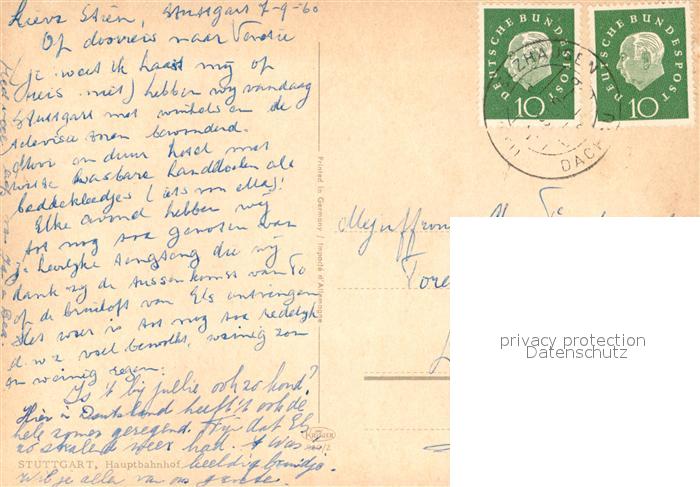 Lieve Stien, Stuttgart 7-9-60
Op doorreis naar Venetie
(je weet ik haast mij of
reis niet) hebben wij vandaag
Stuttgart met winkels en de
televisie toren bewonderd.
Mooi en duur hotel met
witte wasbare handdoeken als
beddekleedjes (iets voor ella)!
Elke avond hebben wij
tot nog toe genoten van
je heerlijke die wij
dank zij de tussenkomst van To
op de bruiloft van Els ontvingen
Het weer is tot nog toe redelijk
d.w.z veel bewolkt, weinig zon
en weinig regen.
Is 't bij jullie ook zo koud?
Hier in Duitsland heeft 't ook de
hele zomer geregend. Fijn dat Els
zo stralend weer had. 't was
beeldig bruidje.
wil je alles van ons
STUTTGART, Hauptbahnhof
Printed in Germany / Importé d'Allemagne
KRÜGER
DEUTSCHE BUNDESPOST
10
DEUTSCHE BUNDESPOST
10
DACHAU
Mejuffrouw
privacy protection
Datenschutz